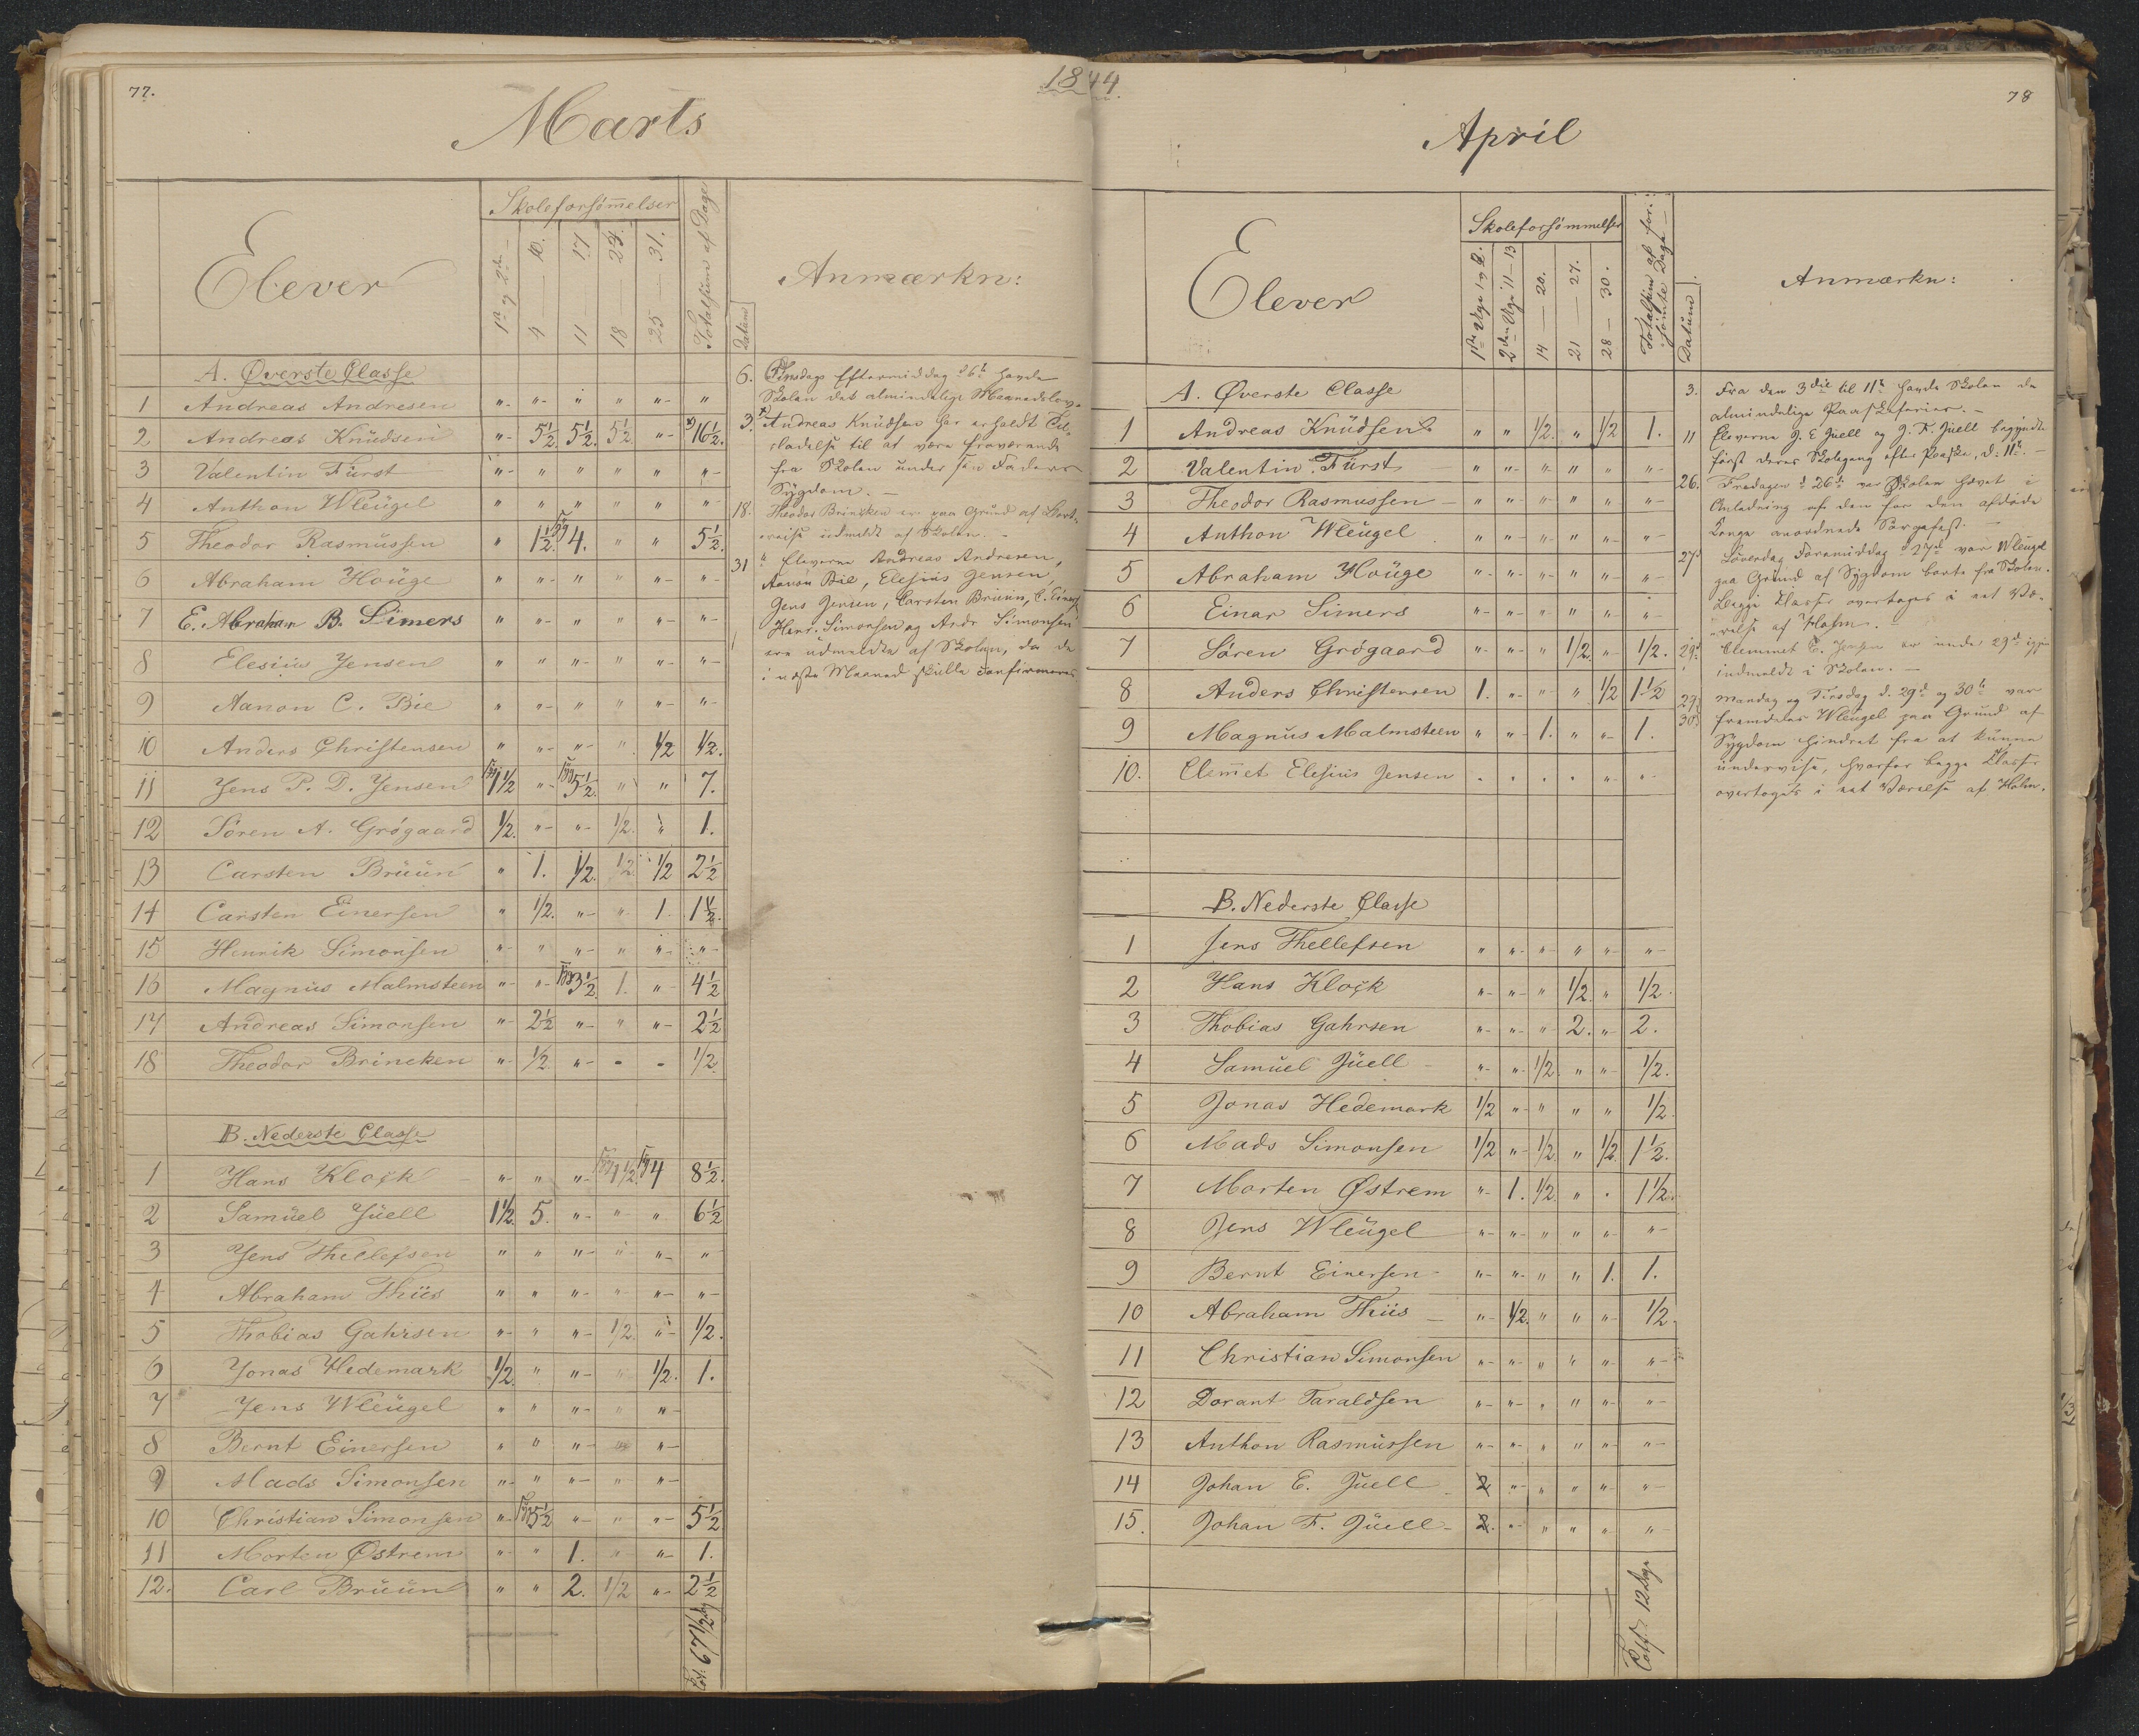 77.
1844.
Marts
Elever
Skoleforsømmelser
1ste og 2den
4 — 10.
11 — 17
18 — 24.
25 — 31.
Totalsum af Dage
Datum
Anmærkn:
A. Øverste Classe
1 Andreas Andresen " " " " " "
2 Andreas Knudsen " 5½ 5½ 5½ " 16½.
3 Valentin Fürst " " " " " "
4 Anthon Wleügel " " " " " "
5 Theodor Rasmussen " 1½ 4. " " 5½.
6 Abraham Houge " " " " " "
7 E. Abraham B. Simers " " " " " "
8 Elesius Jensen " " " " " "
9 Aanon C. Bie " " " " " "
10 Anders Christensen " " " " ½ ½.
11 Jens P. D. Jensen 1½ " 5½ " " 7.
12 Søren A. Grøgaard ½. " " ½. " 1.
13 Carsten Brüün " 1. ½. ½. ½ 2½
14 Carsten Einersen " ½. " " 1. 1½.
15 Henrik Simonsen " " " " " "
16 Magnus Malmsteen " " 3½ 1. " 4½
17 Andreas Simonsen " 2½ " " " 2½
18 Theodor Brincken " ½ " - - ½
B. Nederste Classe
1 Hans Klock " " " 1½. 4 8½.
2 Samuel Juell 1½. 5. " " " 6½
3 Jens Thellefsen " " " " " "
4 Abraham Thiis " " " " " "
5 Thobias Gahrsen " " " ½. " ½.
6 Jonas Hedemark ½. " " " ½. 1.
7 Jens Wleügel " " " " "
8 Bernt Einersen " " " " "
9 Mads Simonsen " " " " "
10 Christian Simonsen " 5½ " " " 5½
11 Morten Østrem " " 1. " " 1.
12. Carl Brüün " " 2. ½ " 2½
Tot: 67½ Dg
6. Onsdags Eftermiddag d 6te havde
Skolen det almindelige Maanedslov.
3. Andreas Knudsen har erholdt Til-
ladelse til at være fraværende
fra Skolen under sin Faders
Sygdom. —
18. Theodor Brincken er paa Grund af Bort-
reise udmeldt af Skolen. —
31 Eleverne Andreas Andresen,
Aanon Bie, Elesius Jensen,
Jens Jensen, Carsten Brüün, C. Einers
Henr. Simonsen og Andr. Simonsen
ere udmeldte af Skolen, da de
i næste Maaned skulle confirmeres
78
April
Elever
Skoleforsømmelser
1ste Uge 1 og 2.
2den Uge 11—13
14 — 20.
21 — 27.
28 — 30.
Totalsum af for-
sømte Dage
Datum
Anmærkn:
A. Øverste Classe
1 Andreas Knudsen " " ½. " ½ 1.
2 Valentin Fürst " " " " " "
3 Theodor Rasmussen " " " " " "
4 Anthon Wleügel " " " " " "
5 Abraham Houge " " " " " "
6 Einar Simers " " " " " "
7 Søren Grøgaard " " " ½. " ½.
8 Anders Christensen 1. " " " ½ 1½
9 Magnus Malmsteen " " 1. " " 1.
10. Clemmet Elesius Jensen " " " " " "
B. Nederste Classe
1 Jens Thellefsen " " " " " "
2 Hans Klock " " " ½. " ½.
3 Thobias Gahrsen " " " 2. " 2.
4 Samuel Juell " " ½. " " ½.
5 Jonas Hedemark ½ " " " " ½.
6 Mads Simonsen ½ " ½. " ½. 1½.
7 Morten Østrem " 1. ½. " " 1½.
8 Jens Wleügel " " " " " "
9 Bernt Einersen " " " " 1. 1.
10 Abraham Thiis " ½. " " " ½.
11 Christian Simonsen " " " " " "
12 Dorant Taraldsen " " " " " "
13 Anthon Rasmussen " " " " " "
14 Johan E. Juell 2 " " " " "
15. Johan F. Juell 2. " " " " "
12 Dage
3. Fra den 3die til 11te havde Skolen de
almindelige Paaskeferier. —
11 Eleverne J. E Juell og J. F. Juell begyndte
først deres Skolegang efter Paaske, d: 11te. —
26. Fredagen d 26de var Skolen hævet i
Anledning af den for den afdøde
Konge anordnede Sørgefest. —
27de Løverdag Formiddag d 27de var Wleugel
paa Grund af Sygdom borte fra Skolen.
Begge Klasser overtoges i eet Væ-
relse af Holm. —
29de Clemmet E. Jensen er under 29de igjen
indmeldt i Skolen. —
29de 30te Mandag og Tirsdag d. 29de og 30te var
fremdeles Wleugel paa Grund af
Sygdom hindret fra at kunne
undervise, hvorfor begge Klasser
overtoges i eet Værelse af Holm.